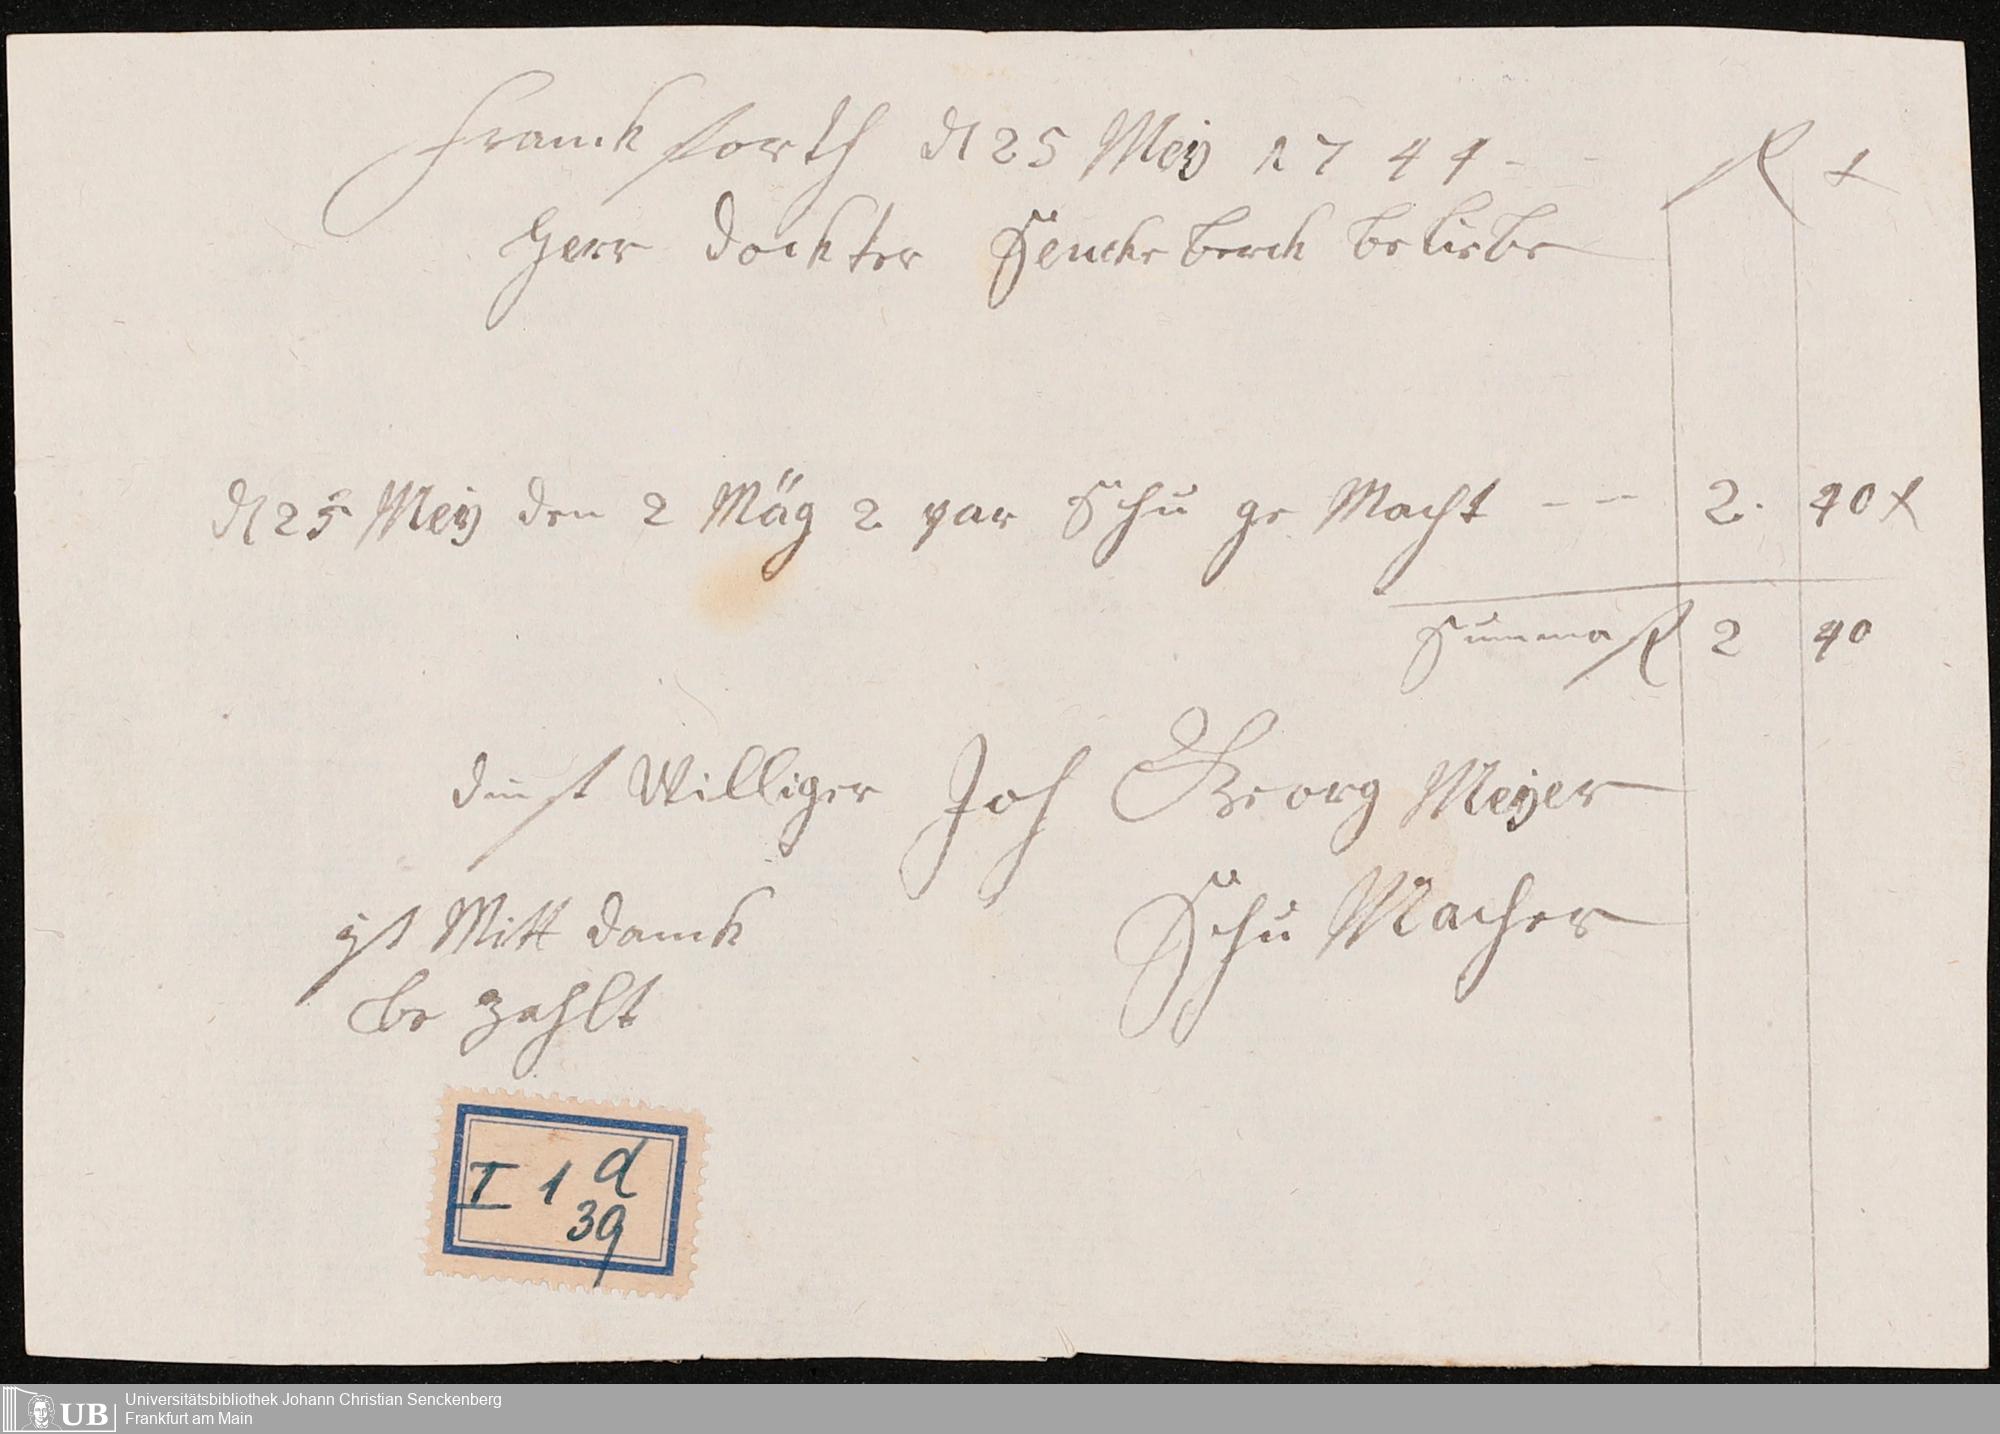 Franckforth d 25 Meÿ 1744 - - fl x
Herr dockter Senckeberck beliebe
d 25 Meÿ den 2 Mäg 2 par Schu ge Macht - - 2. 40 x
Summa fl 2 40
dinst Williger Joh Georg Meÿer
Schu Macher
ist Mitt danck
be zahlt
I 1 d
39
UB Universitätsbibliothek Johann Christian Senckenberg
Frankfurt am Main